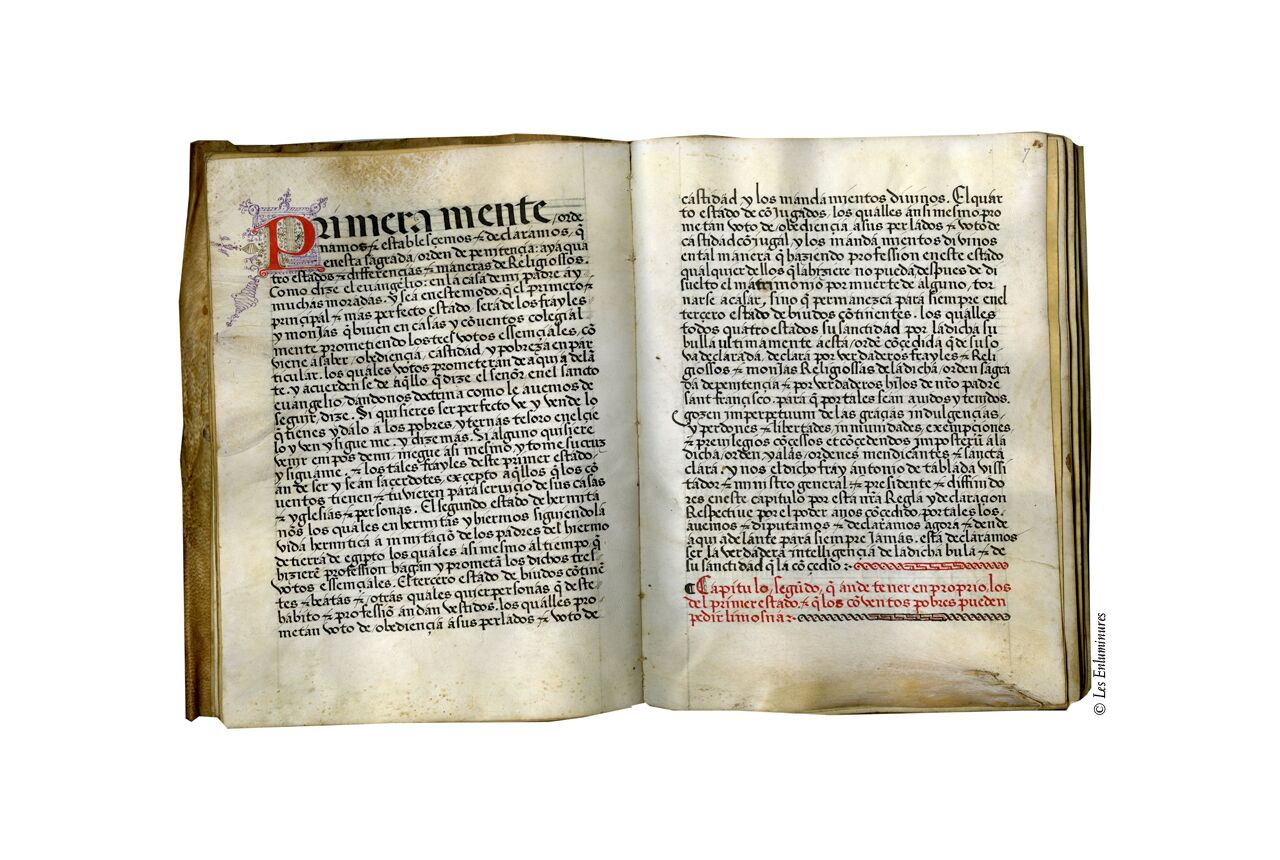 Primera mente, orde
namos ⁊ establesçemos ⁊ declaramos, q̃
enesta sagrada, orden de penitençia: aya qua
tro estados ⁊ differençias ⁊ maneras de Religiossos.
Como dize el evangelio: en la casa de mi padre a y
muchas moradas. Y sea en este modo, q̃ el primero ⁊
prinçipal ⁊ mas perfecto estado, sera de los frayles
y monjas q̃ biuen en casas y cõventos colegial
mente prometiendo los tres votos essençiales, cõ
viene a saber, obediençia, castidad, y pobreza en par
ticular. los quales votos prometeran de aqui a delã
te. y acuerden se de aq̃llo q̃ dize el señor, en el sancto
evangelio, dando nos doctrina como le auemos de
seguir, dize. Si quisieres ser perfecto ve y vende lo
q̃ tienes y dalo a los pobres y ternas tesoro en el çie
lo y ven y sigue me. y dize mas. Si alguno quisiere
venir em pos de mi, niegue asi mesmo y tome su cruz
y sigua me. ⁊ los tales frayles deste primer estado,
an de ser y sean saçerdotes, excepto aq̃llos q̃ los cõ
ventos tienen ⁊ tuvieren para serviçio de sus casas
⁊ yglesias ⁊ personas. El segundo estado de hermita
ños los quales en hermitas y hiermos siguiendo la
vida hermitica a immitaciõ de los padres del hiermo
de tierra de egipto los quales asi mesmo al tiempo, q̃
hizieren profession hagan y prometã los dichos tres
votos essençiales. El terçero estado de biudos cõtinẽ
tes ⁊ beatas ⁊, otras quales quier personas q̃ deste
habito ⁊ professiõ andan vestidos, los qualles pro
metan voto de, obediençia a sus perlados ⁊ voto de
7
castidad y los mandamientos divinos. El quar
to estado de cõjugados, los qualles ansi mesmo pro
metan voto de obediençia a sus perlados y voto de
castidad cõjugal y los mandamientos divinos
en tal manera q̃ haziendo profession en este estado
qualquier dellos q̃ la hiziere no pueda despues de di
suelto el matrimonio por muerte de alguno, tor
narse a casar, sino q̃ permanezca para siempre en el
terçero estado de biudos cõtinentes. los qualles
todos quatro estados su sanctidad por la dicha su
bulla ultimamente a esta, ordẽ cõçedida q̃ de suso
va declarada, declara por verdaderos frayles ⁊ Reli
giossos ⁊ monjas Religiossas de la dicha, orden sagra
da de penitençia ⁊ por verdaderos hijos de nr̃o padre
sant françisco. para q̃ por tales sean auidos y tenidos.
gozen imperpetuum de las graçias indulgençias,
y perdones ⁊ libertades, inmunidades, exempçiones,
⁊ previlegios cõçessos et cõçedendos imposterũ a la
dicha, orden, y a las, ordenes mendicantes ⁊ sancta
clara. y nos el dicho fray antonio de tablada vissi
tador ⁊ ministro general. ⁊ presidente ⁊ diffinido
res en este capitulo por esta nr̃a Regla y declaraçion
Respective por el poder a nos cõçedido, por tales los.
auemos ⁊ diputamos ⁊ declaramos agora ⁊ dende
aqui adelante para siempre Jamas. esta declaramos
ser la verdadera intelligençia de la dicha bula ⁊ de
su sanctidad q̃ la cõçedio:
¶ Capitulo, segũdo, q̃ an de tener en proprio, los
del primer estado. ⁊ q̃ los cõventos pobres pueden
pedir limosna:
© Les Enluminures